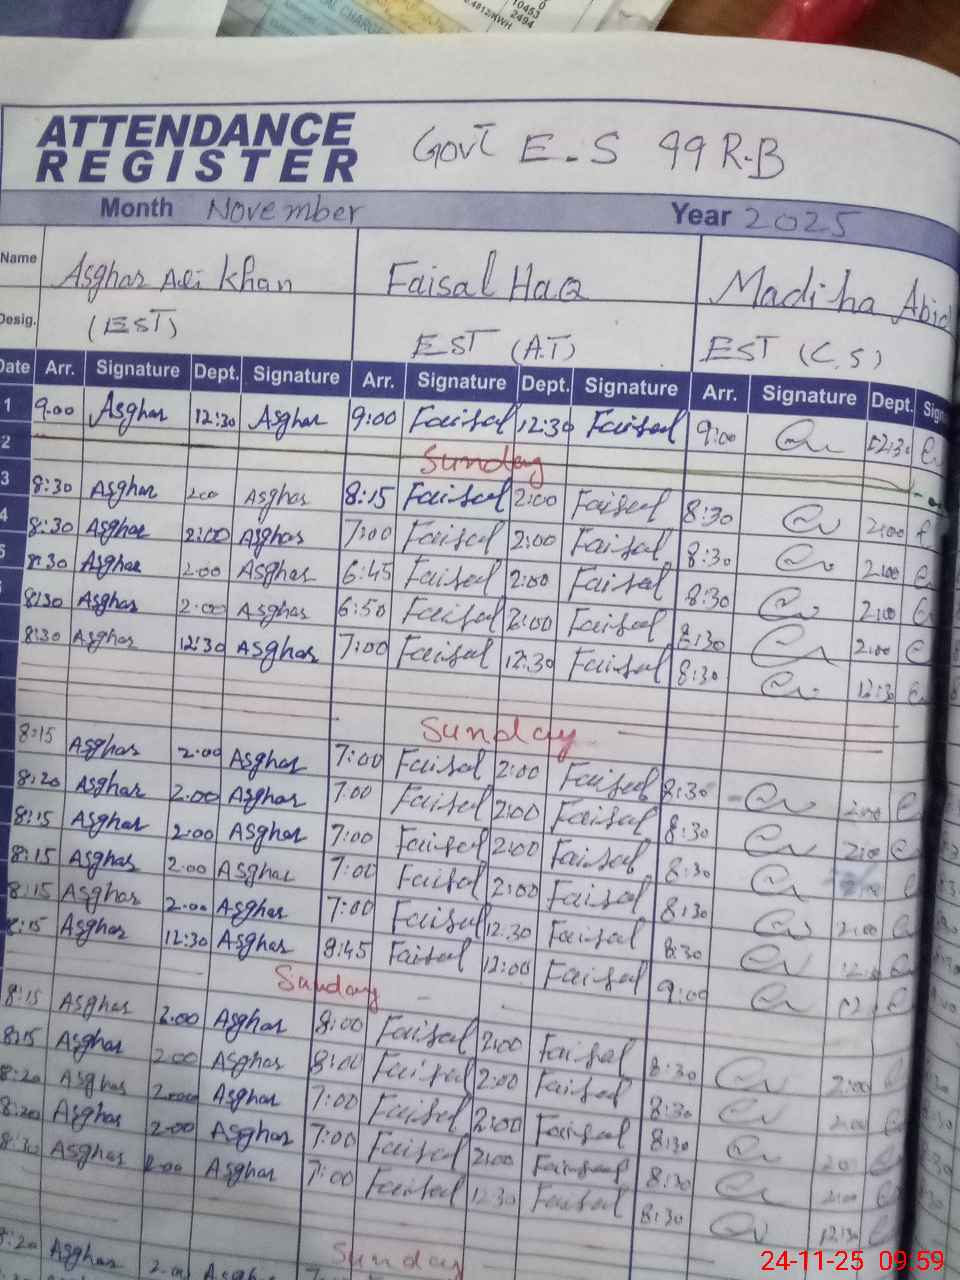 10453
2494
4812/KWH
ATTENDANCE
REGISTER
Govt E.S 99 R-B
Month November Year 2025
Name Asghar Ali Khan Faisal Haq Madiha Abid
Desig. (EST) EST (A.T) EST (C.S)
Date Arr. Signature Dept. Signature Arr. Signature Dept. Signature Arr. Signature Dept.
1 9.00 Asghar 12:30 Asghar 9:00 Faisal 12:30 Faisal 9:00 12:30
2 Sunday
3 8:30 Asghar 2.00 Asghar 8:15 Faisal 2:00 Faisal 8:30 2:00
4 8:30 Asghar 2:00 Asghar 7:00 Faisal 2:00 Faisal 8:30 2:00
5 8:30 Asghar 2.00 Asghar 6:45 Faisal 2:00 Faisal 8:30 2:00
8:30 Asghar 2:00 Asghar 6:50 Faisal 2:00 Faisal 8:30 2:00
8:30 Asghar 12:30 Asghar 7:00 Faisal 12:30 Faisal 8:30 12:30
Sunday
8:15 Asghar 2.00 Asghar 7:00 Faisal 2:00 Faisal 8:30 2:00
8:20 Asghar 2.00 Asghar 7:00 Faisal 2:00 Faisal 8:30
8:15 Asghar 2:00 Asghar 7:00 Faisal 2:00 Faisal 8:30
8:15 Asghar 2.00 Asghar 7:00 Faisal 2:00 Faisal 8:30 2:00
8:15 Asghar 2.00 Asghar 7:00 Faisal 12:30 Faisal 8:30
8:15 Asghar 12:30 Asghar 8:45 Faisal 12:00 Faisal 9:00
Sunday
8:15 Asghar 2.00 Asghar 8:00 Faisal 2:00 Faisal 8:30 2:00
8:15 Asghar 2.00 Asghar 8:00 Faisal 2:00 Faisal 8:30 2:00
8:20 Asghar 2.00 Asghar 7:00 Faisal 2:00 Faisal 8:30
8:20 Asghar 2.00 Asghar 7:00 Faisal 2:00 Faisal 8:30 2:00
8:30 Asghar 2.00 Asghar 7:00 Faisal 12:30 Faisal 8:30 12:30
Sunday
8:20 Asghar 2.00 Asghar
24-11-25 09:59